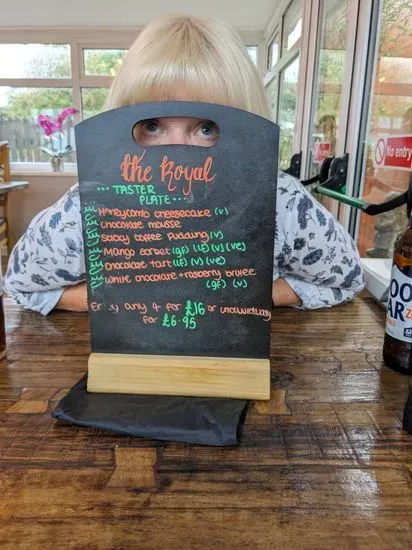 the Royal
... TASTER
PLATE...
Honeycomb cheesecake (v)
chocolate mousse
Sticky toffee pudding (v)
Mango sorbet (gf) (lf) (v) (ve)
chocolate tart (lf) (v) (ve)
white chocolate + raspberry brulee
(gf) (v)
any 4 for £16 or individually
for £6.95
No entry